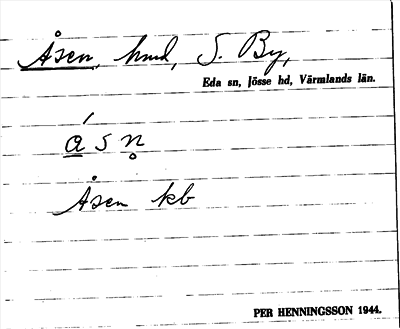 Åsen, hmd, S. By,
Eda sn, Jösse hd, Värmlands län.
á s n̥
Åsen kb
PER HENNINGSSON 1944.